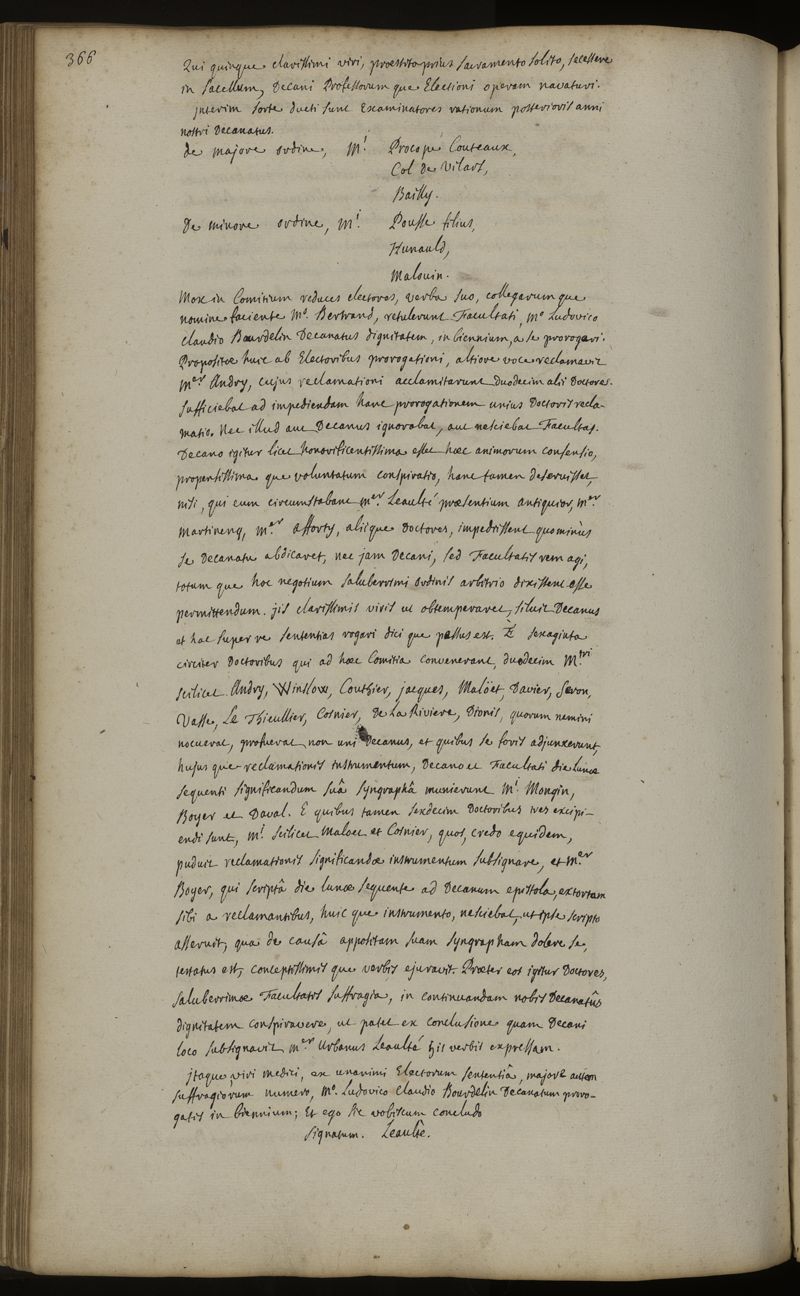 366
Qui quinque clarissimi viri, præstito prius sacramento solito, secessere
in sacellum, Decani Professorumque Electioni operam navaturi.
Interim sorte ducti sunt Examinatores rationum posterioris anni
nostri Decanatus.
de majore ordine, M.i Procope Couteaux,
Col de Vilars,
Bailly.
De minore ordine, M.i Pousse filius,
Hunauld,
Malouin.
Mox in Comitium reduces electores, verba suo, collegarumque
nomine faciente M.o Bertrand, retulerunt Facultati, M.o Ludovico
Claudio Bourdelin Decanatus dignitatem, in biennium, a se prorogari.
Propositæ huic ab Electoribus prorogationi, altiore voce reclamavit
M.er Andry, cujus reclamationi acclamitarunt Duodecim alii Doctores.
sufficiebat ad impediendam hanc prorogationem unius Doctoris recla-
matio. Nec illud aut Decanus ignorabat, aut nesciebat Facultas.
Decano igitur licet honorificentissima esset hæc animorum consensio,
propensissima que voluntatum conspiratio, hanc tamen deseruisset,
nisi, qui eum circumstabant M.er Leaulté præsentium antiquior, M.er
Martinenq, M.er Afforty, aliique Doctores, impedissent quominùs
se Decanatu abdicaret, nec jam Decani, sed Facultatis rem agi,
totum que hoc negotium saluberrimi ordinis arbitrio dixissent esse
permittendum. jis clarissimis viris ut obtemperaret, siluit Decanus
et hac super re sententias rogari dici que passus est. È sexaginta
circiter Doctoribus qui ad hæc Comitia convenerant, duodecim M.tri
scilicet Andry, Winslow, Couthier, jacques, Maloët, Davier, Seron,
Vasse, Le Thieullier, Cosnier, De La Riviere, Dionis, quorum nemini
nocuerat, profuerat non uni Decanus, et quibus se foris adjunxerunt
hujus que reclamationis instrumentum, Decano et Facultati die lunæ
sequenti significandum suâ syngraphâ munierunt M.i Mongin,
Boyer et Daval. E quibus tamen sexdecim Doctoribus tres excipi-
endi sunt, M.i scilicet Maloet et Cosnier, quos, credo equidem,
puduit reclamationis significandæ instrumentum subsignare, et M.er
Boyer, qui scriptâ die lunæ sequente ad Decanum epistola, extortam
sibi a reclamantibus, huic que instrumento, nesciebat, ut ipse scripto
asseruit, qua de causâ appositam suam syngrapham dolere se,
testatus est, conceptissimis que verbis ejuravit. Præter eos igitur Doctores,
saluberrimæ Facultatis suffragia, in continuandam nobis Decanatûs
dignitatem conspiravere, ut patet ex conclusione quam Decani
loco subsignavit M.er Urbanus Leaulté his verbis expressam.
jtaque, viri medici, ex unanimi Electorum sententiâ, majore autem
suffragiorum numero, M.o Ludovico Claudio Bourdelin Decanatum proro-
gatis in biennium; Et ego sic vobiscum concludo
signatum. Leaulté.